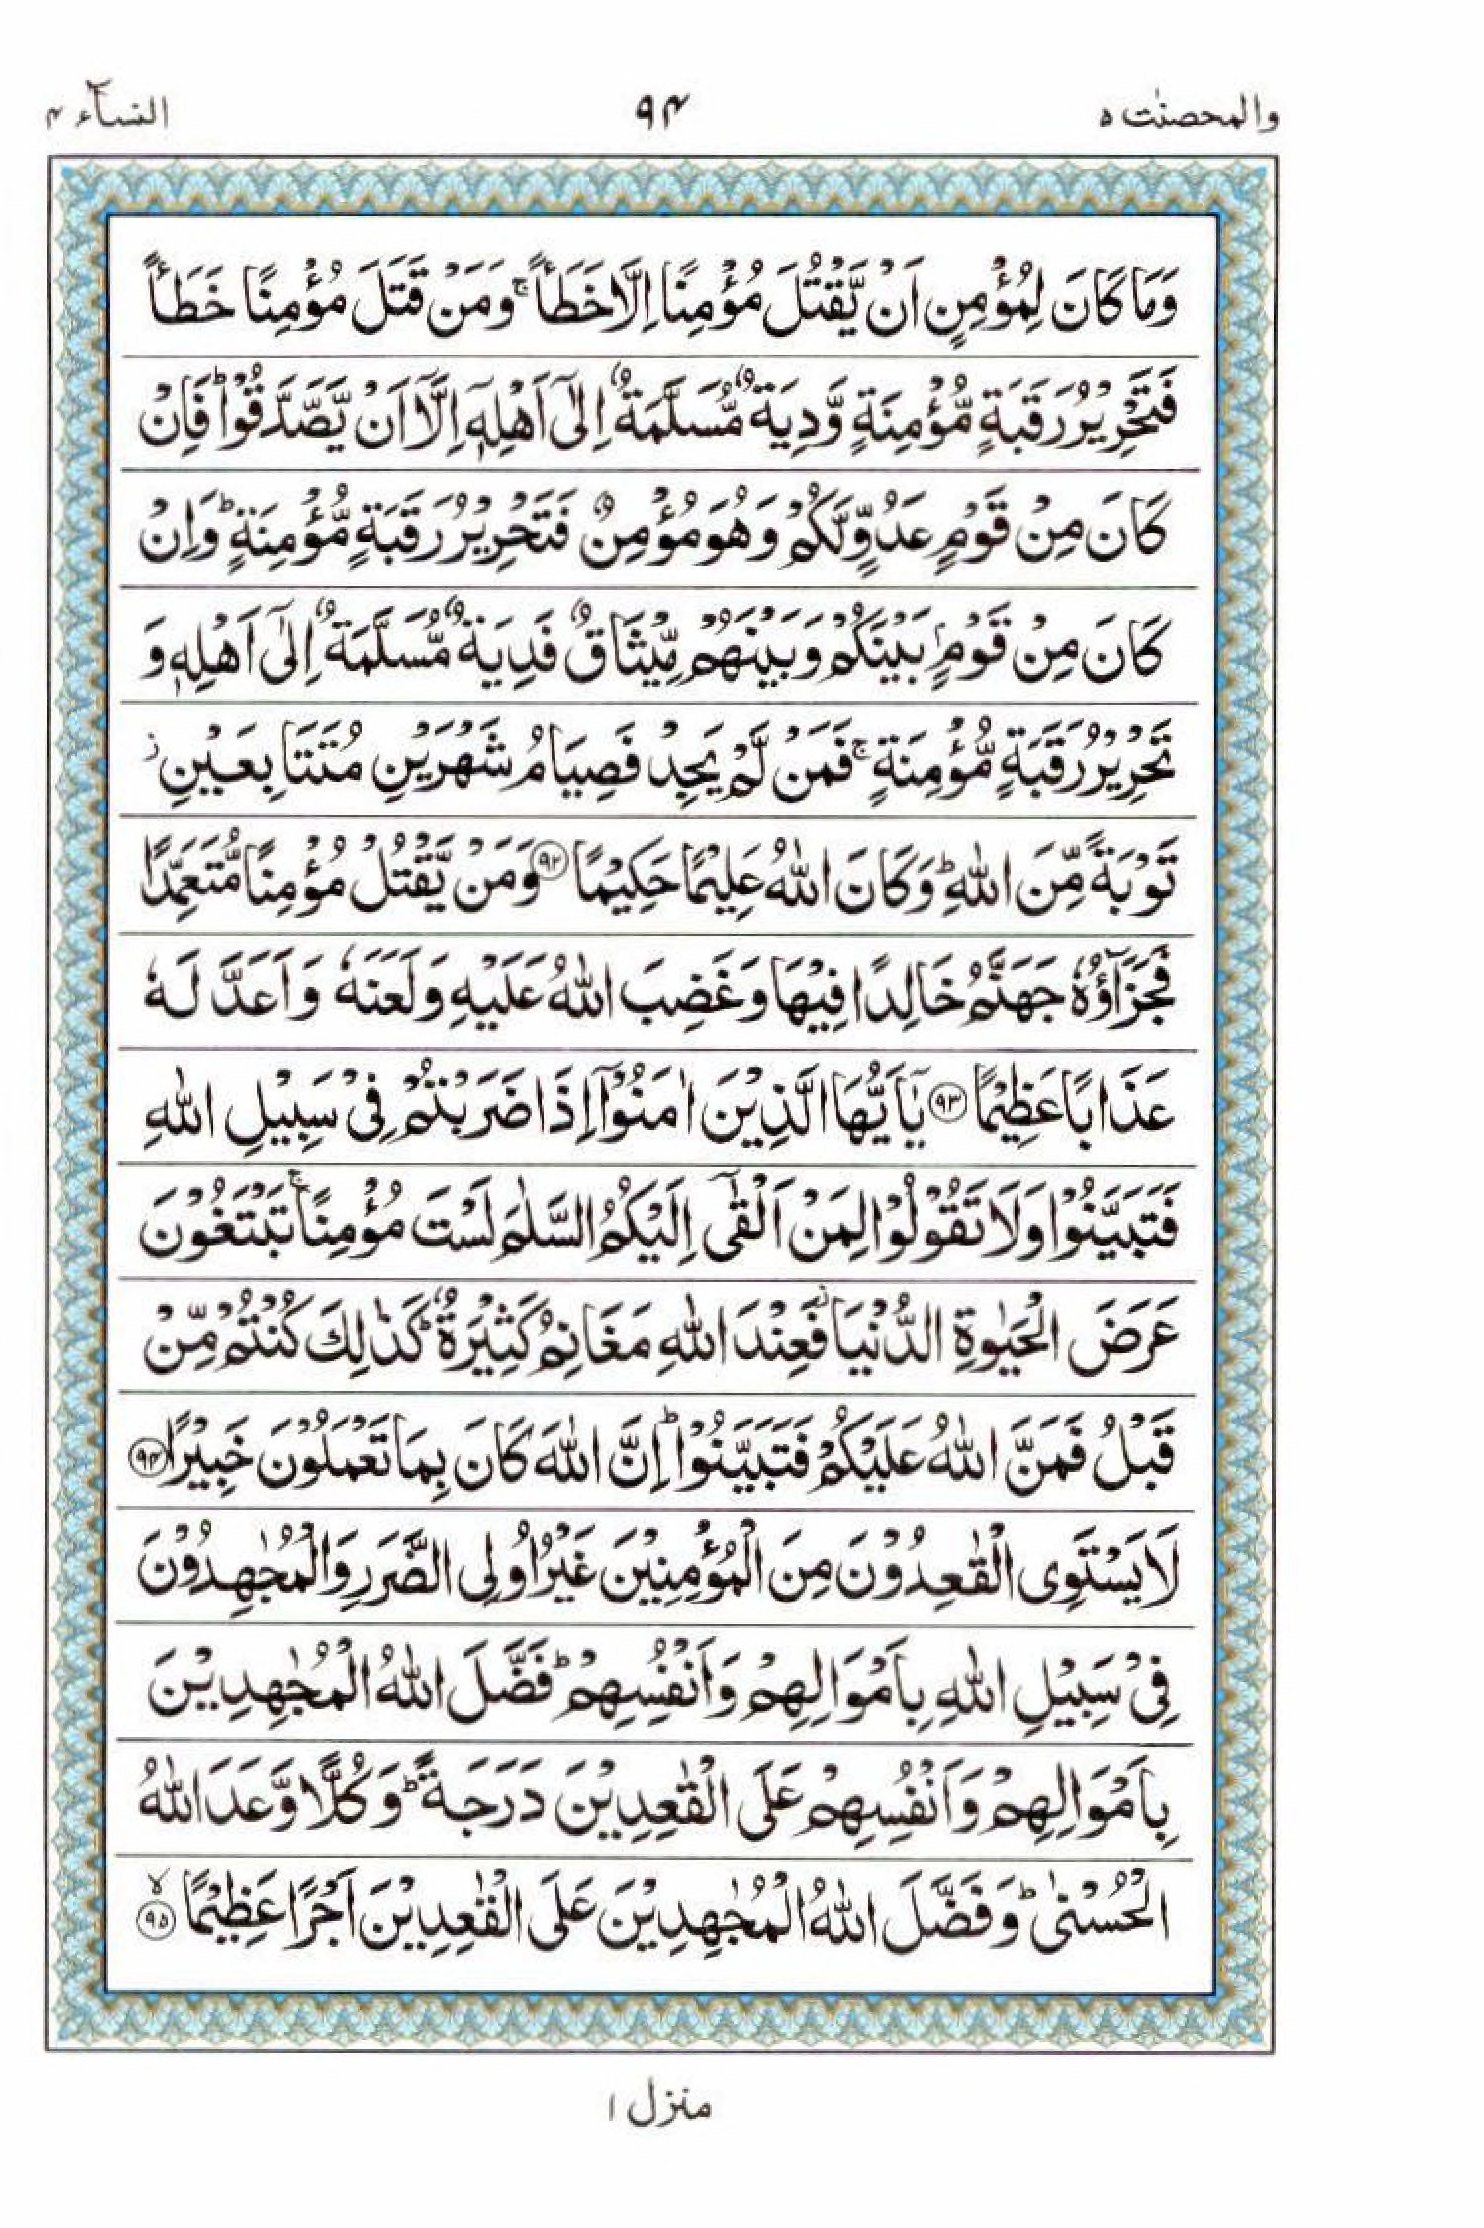 والمحصنٰت ۵ ۹۴ النسآء ۴
وَمَا كَانَ لِمُؤْمِنٍ اَنْ يَّقْتُلَ مُؤْمِنًا اِلَّا خَطَـًٔا ۚ وَمَنْ قَتَلَ مُؤْمِنًا خَطَـًٔا
فَتَحْرِيْرُ رَقَبَةٍ مُّؤْمِنَةٍ وَّدِيَةٌ مُّسَلَّمَةٌ اِلٰٓى اَهْلِهٖٓ اِلَّآ اَنْ يَّصَّدَّقُوْا ؕ فَاِنْ
كَانَ مِنْ قَوْمٍ عَدُوٍّ لَّكُمْ وَهُوَ مُؤْمِنٌ فَتَحْرِيْرُ رَقَبَةٍ مُّؤْمِنَةٍ ؕ وَاِنْ
كَانَ مِنْ قَوْمٍۭ بَيْنَكُمْ وَبَيْنَهُمْ مِّيْثَاقٌ فَدِيَةٌ مُّسَلَّمَةٌ اِلٰٓى اَهْلِهٖ وَ
تَحْرِيْرُ رَقَبَةٍ مُّؤْمِنَةٍ ۚ فَمَنْ لَّمْ يَجِدْ فَصِيَامُ شَهْرَيْنِ مُتَتَابِعَيْنِ ؗ
تَوْبَةً مِّنَ اللّٰهِ ؕ وَكَانَ اللّٰهُ عَلِيْمًا حَكِيْمًا ۹۲ وَمَنْ يَّقْتُلْ مُؤْمِنًا مُّتَعَمِّدًا
فَجَزَآؤُهٗ جَهَنَّمُ خَالِدًا فِيْهَا وَغَضِبَ اللّٰهُ عَلَيْهِ وَلَعَنَهٗ وَاَعَدَّ لَهٗ
عَذَابًا عَظِيْمًا ۹۳ يٰٓاَيُّهَا الَّذِيْنَ اٰمَنُوْٓا اِذَا ضَرَبْتُمْ فِيْ سَبِيْلِ اللّٰهِ
فَتَبَيَّنُوْا وَلَا تَقُوْلُوْا لِمَنْ اَلْقٰٓى اِلَيْكُمُ السَّلٰمَ لَسْتَ مُؤْمِنًا ۚ تَبْتَغُوْنَ
عَرَضَ الْحَيٰوةِ الدُّنْيَا ؗ فَعِنْدَ اللّٰهِ مَغَانِمُ كَثِيْرَةٌ ؕ كَذٰلِكَ كُنْتُمْ مِّنْ
قَبْلُ فَمَنَّ اللّٰهُ عَلَيْكُمْ فَتَبَيَّنُوْا ؕ اِنَّ اللّٰهَ كَانَ بِمَا تَعْمَلُوْنَ خَبِيْرًا ۹۴
لَا يَسْتَوِى الْقٰعِدُوْنَ مِنَ الْمُؤْمِنِيْنَ غَيْرُ اُولِى الضَّرَرِ وَالْمُجٰهِدُوْنَ
فِيْ سَبِيْلِ اللّٰهِ بِاَمْوَالِهِمْ وَاَنْفُسِهِمْ ؕ فَضَّلَ اللّٰهُ الْمُجٰهِدِيْنَ
بِاَمْوَالِهِمْ وَاَنْفُسِهِمْ عَلَى الْقٰعِدِيْنَ دَرَجَةً ؕ وَكُلًّا وَّعَدَ اللّٰهُ
الْحُسْنٰى ؕ وَفَضَّلَ اللّٰهُ الْمُجٰهِدِيْنَ عَلَى الْقٰعِدِيْنَ اَجْرًا عَظِيْمًا ۙ ۹۵
منزل ۱